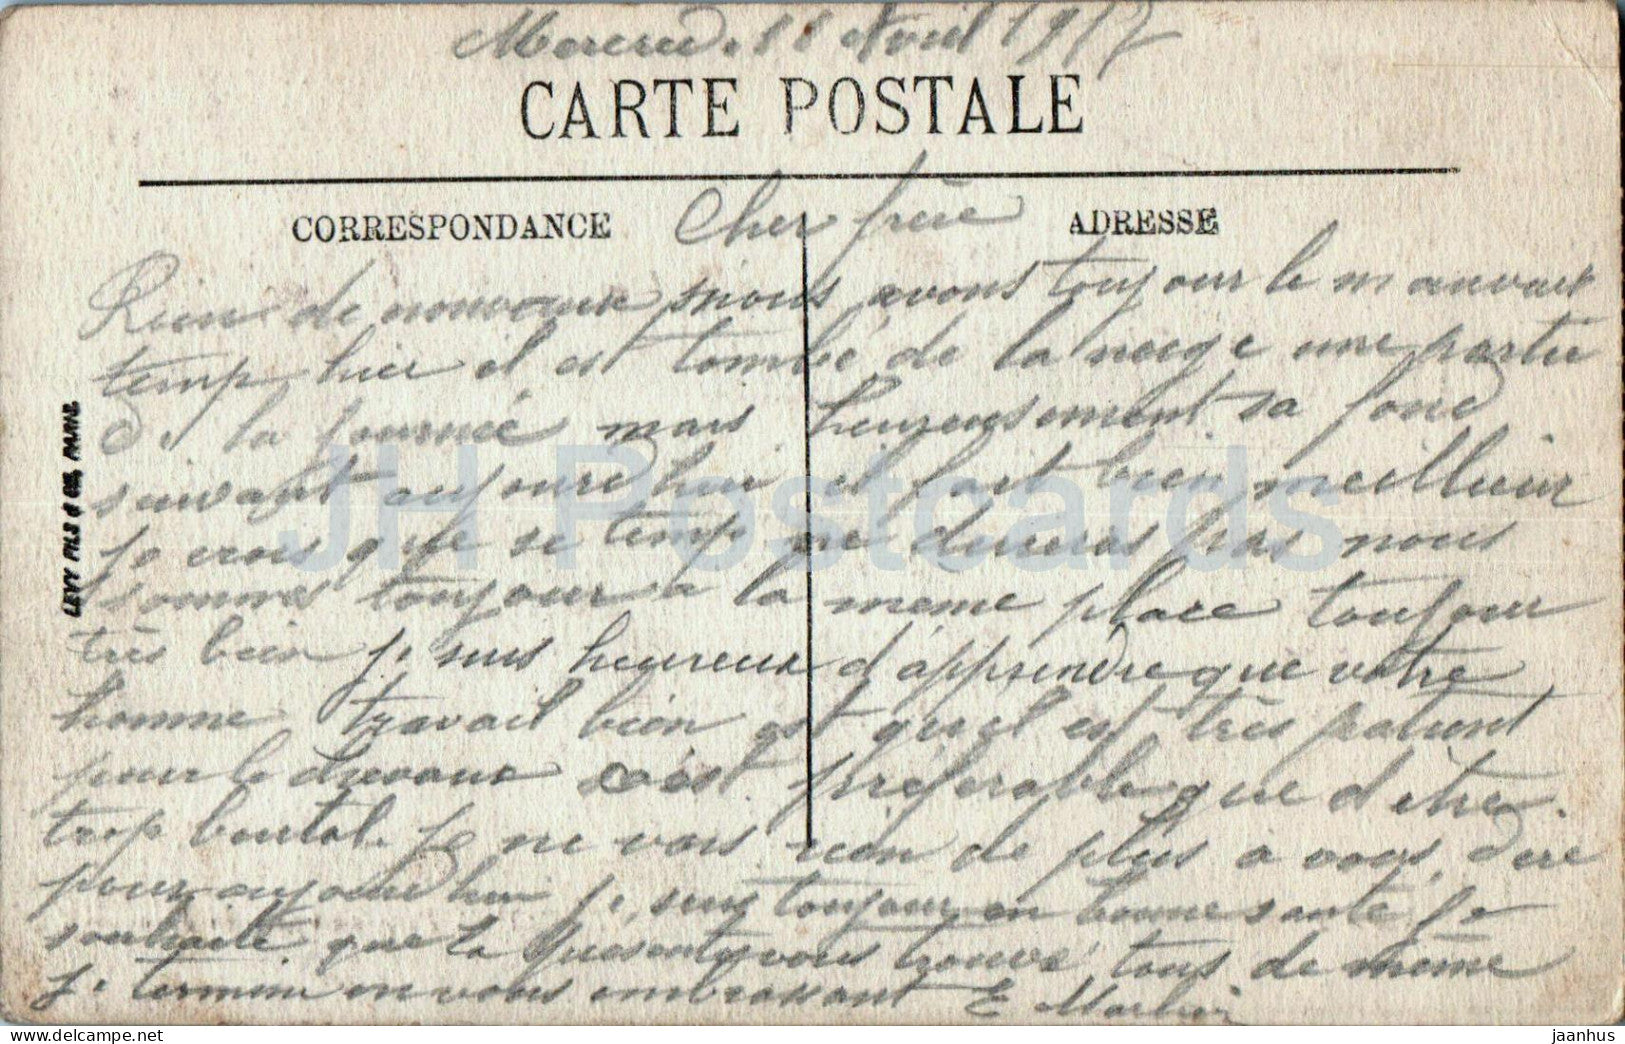 Mercredi 11 Avril 1917
CARTE POSTALE
CORRESPONDANCE
Cher frère
ADRESSE
Rien de nouveaux nous avons toujour le mauvait
temp hier il est tombé de la neige une partie
de la journée mais heureusement sa fond
suivant aujourd'hui il fait bien meilleur
je crois que se temp ne dureras pas nous
sommes toujour a la meme place toujour
très bien je suis heureux d'apprendre que votre
homme travail bien est quel est très patient
pour le chevaux c'est préférable que d'etre
trop brutal. je ne vois rien de plus a vous dire
pour aujourd'hui je suis toujour en bonne santé je
souhaite que la présente vous trouve tous de même
je termine en vous embrassant E
LEVY FILS & CIE, PARIS.
JH Postcards
delcampe.net
jaanhus